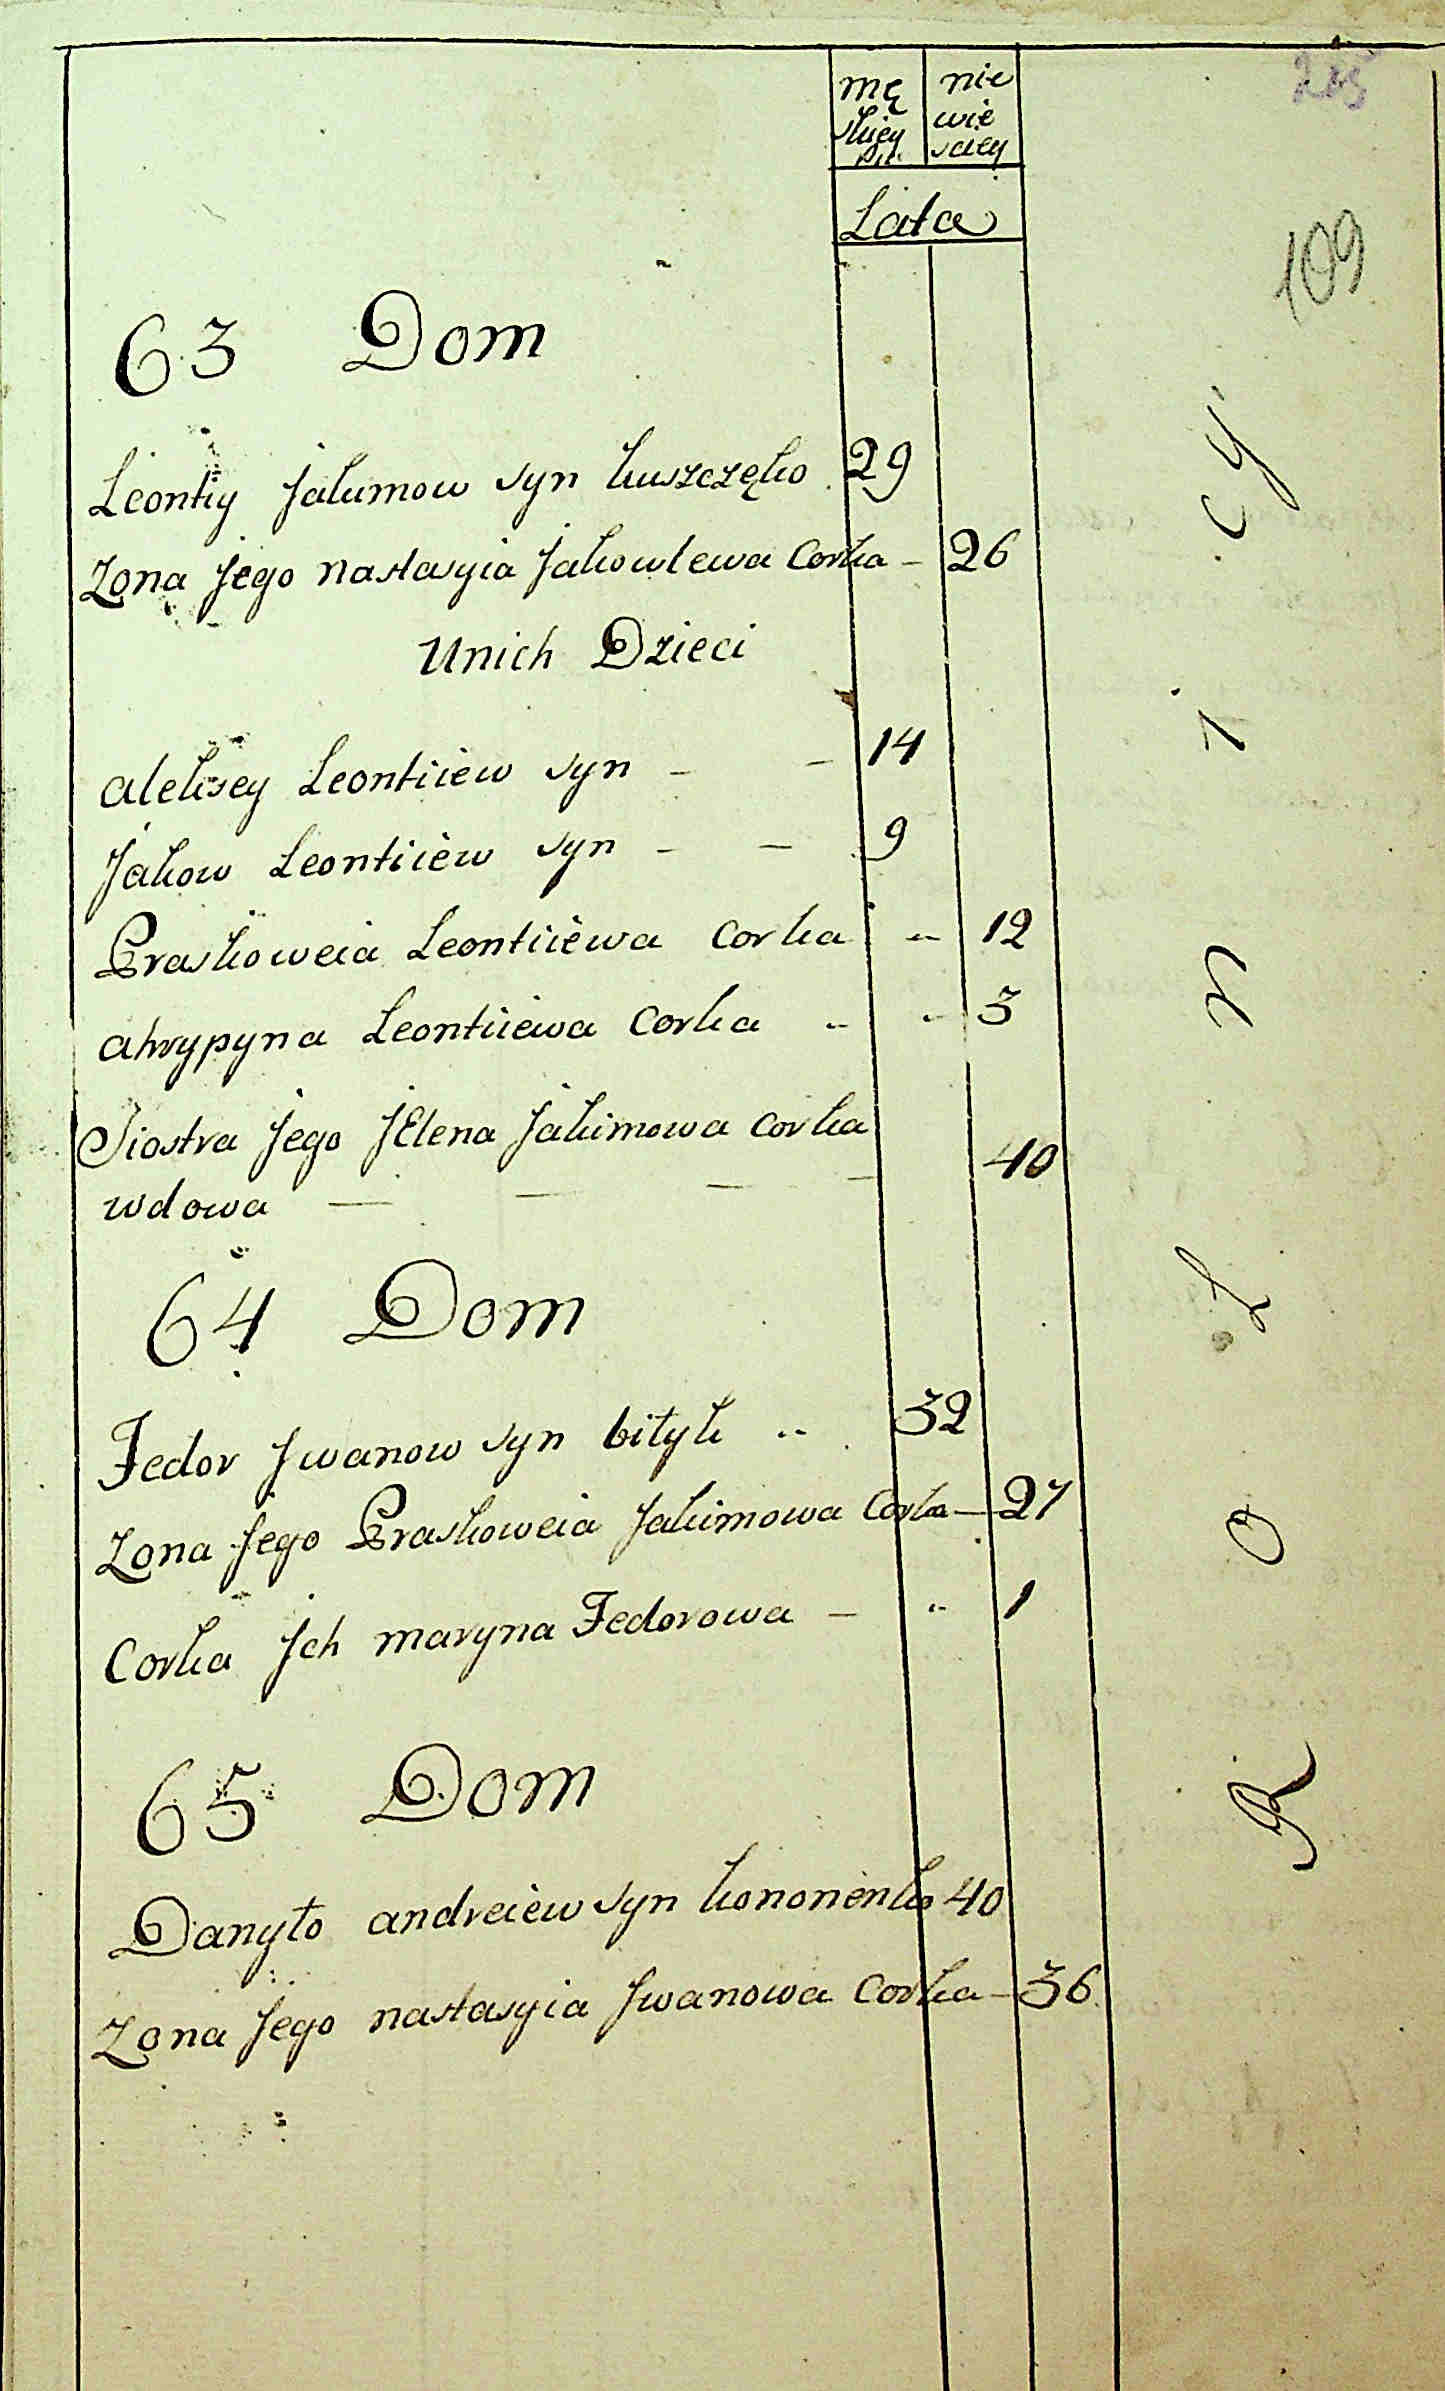 mę nie
skiey wie
płci sciey
Lata
109
63 Dom
Leontiy Jakimow syn kuszczęko 29
Zona Jego nastasyia Jakowlewa Corka - 26
Unich Dzieci
aleksey Leontiiew syn - - 14
Jakow Leontiiew syn - - 9
Praskoweia Leontiiewa Corka 12
ahrypyna Leontiiewa Corka 3
Siostra Jego JElena Jakimowa Corka
wdowa 40
64 Dom
Fedor Jwanow syn bityk 32
Zona Jego Praskoweia Jakimowa Corka - 27
Corka Jch maryna Fedorowa - 1
65 Dom
Danyło andreiew syn kononenko 40
Zona Jego nastasyia Jwanowa Corka - 36
R O L N I C Y